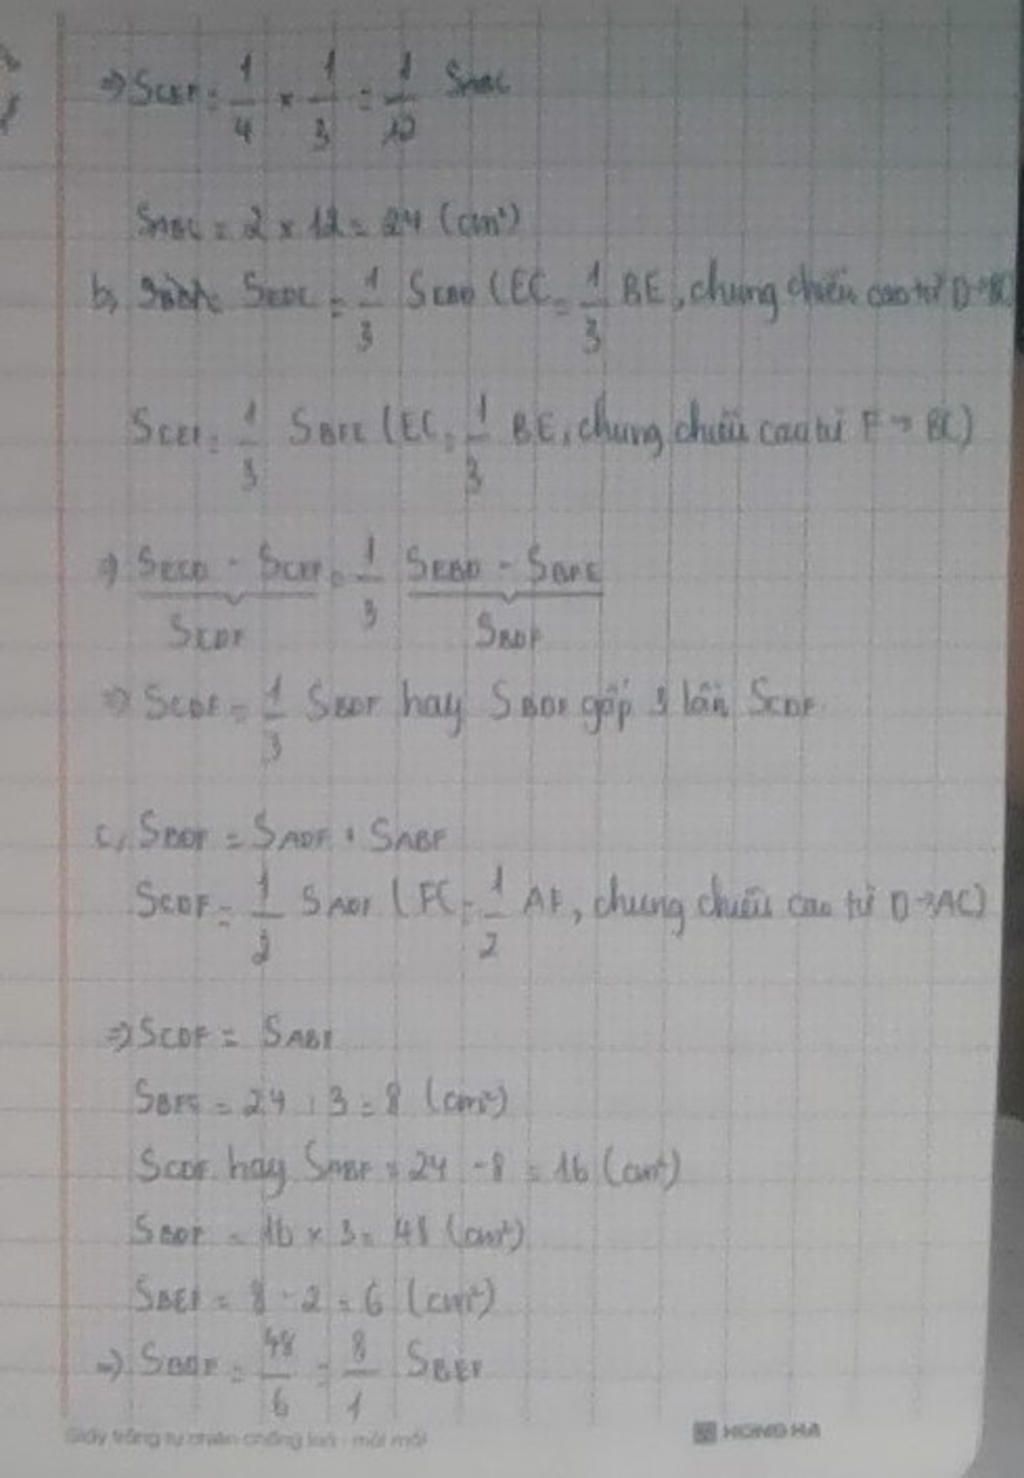 => SCEF = 1/4 × 1/3 = 1/12 SABC
SABC = 2 × 12 = 24 (cm²)
b, SEDC = 1/3 SEBD (EC = 1/3 BE, chung chiều cao từ D -> BC
SCEF = 1/3 SBFE (EC = 1/3 BE, chung chiều cao từ F -> BC)
=> SECD - SCEF = 1/3 SEBD - SBFE
SCDF SBDF
=> SCDF = 1/3 SBDF hay SBDF gấp 3 lần SCDF
c, SBDF = SADF + SABF
SCDF = 1/2 SADF (FC = 1/2 AF, chung chiều cao từ D -> AC)
=> SCDF = SABF
SBFC = 24 : 3 = 8 (cm²)
SCDF hay SABF = 24 - 8 = 16 (cm²)
SBDF = 16 × 3 = 48 (cm²)
SBEF = 8 - 2 = 6 (cm²)
=> SBDF = 48/6 = 8/1 SBEF
Giấy trắng tự nhiên chống loá - mỏi mắt HONG HA